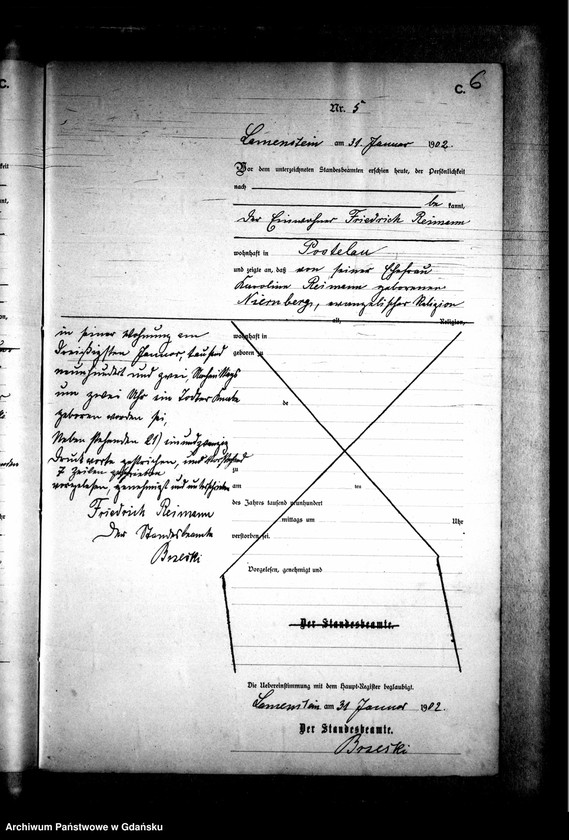 C. 6
Nr. 5
Lamenstein am 31 Januar 1902.
Vor dem unterzeichneten Standesbeamten erschien heute, der Persönlichkeit
nach
be kannt,
der Einwohner Friedrich Reimann
wohnhaft in Postelau
und zeigte an, daß von seiner Ehefrau
Karoline Reimann geborenen
Niernberg, evangelischer Religion
alt, Religion,
wohnhaft in
geboren zu
de
zu
am ten
des Jahres tausend neunhundert
mittags um Uhr
verstorben sei.
in seiner Wohnung am
dreißigsten Januar, tausend
neunhundert und zwei, Nachmittags
um zwei Uhr ein todter Knabe
geboren worden sei,
Neben stehenden 21) einundzwanzig
Druckworte gestrichen, und
7 Zeilen geschrieben
vorgelesen, genehmigt und unterschrieben
Friedrich Reimann
Der Standesbeamte
Brzeski
Vorgelesen, genehmigt und
Der Standesbeamte.
Die Uebereinstimmung mit dem Haupt-Register beglaubigt.
Lamenstein am 31 Januar 1902.
Der Standesbeamte.
Brzeski
Archiwum Państwowe w Gdańsku